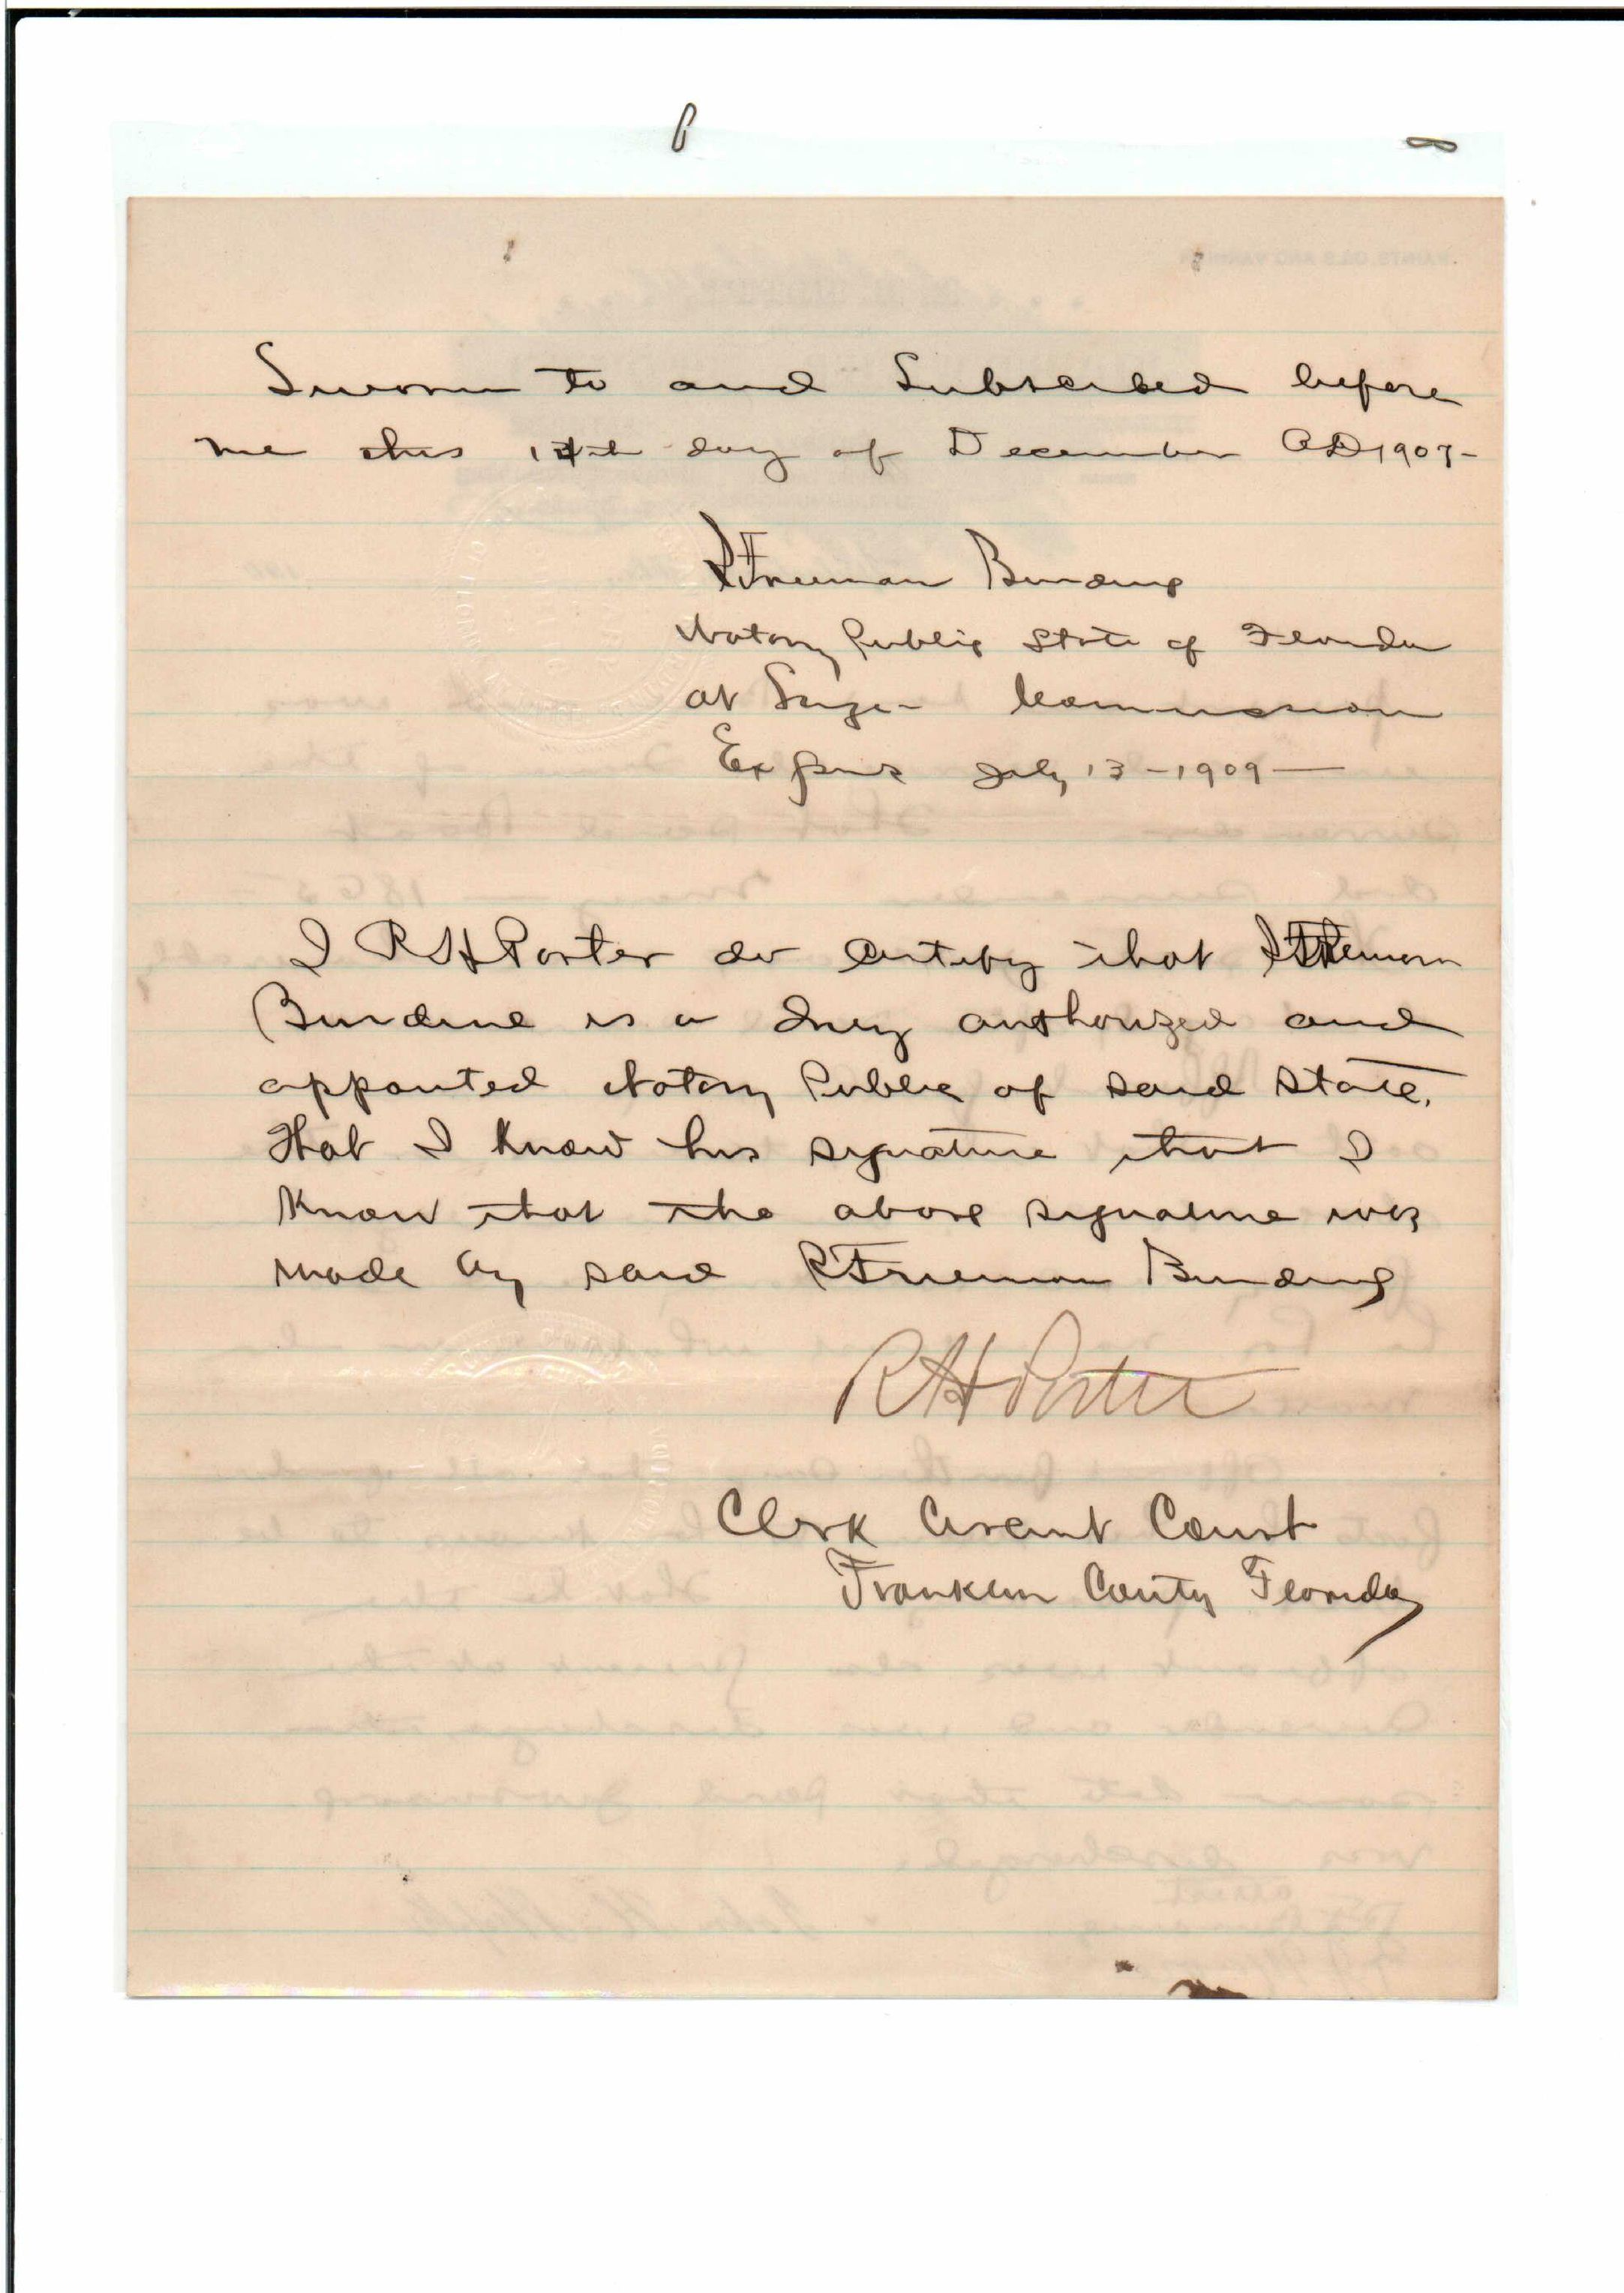 Sworn to and Subscribed before
me this 14th day of December AD 1907-
R Freeman Burdine
Notary Public State of Florida
at Large - Commission
Expires July 13 - 1909 -
I R H Porter do certify that R Freeman
Burdine is a duly authorized and
appointed Notary Public of said State.
that I know his signature that I
know that the above signature was
made by said R Freeman Burdine
R H Porter
Clerk Circuit Court
Franklin County Florida